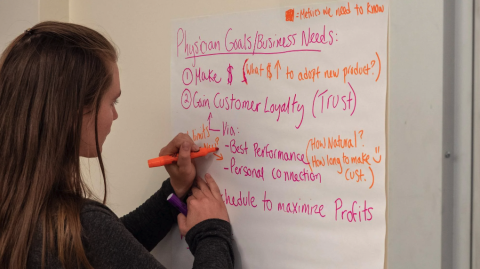 = Metrics we need to know
Physician Goals/Business Needs:
① Make $ (What $↑ to adopt new product?)
② Gain Customer Loyalty (Trust)
Via:
- Best Performance (How Natural?
How long to make
- Personal connection cust. )
schedule to maximize Profits